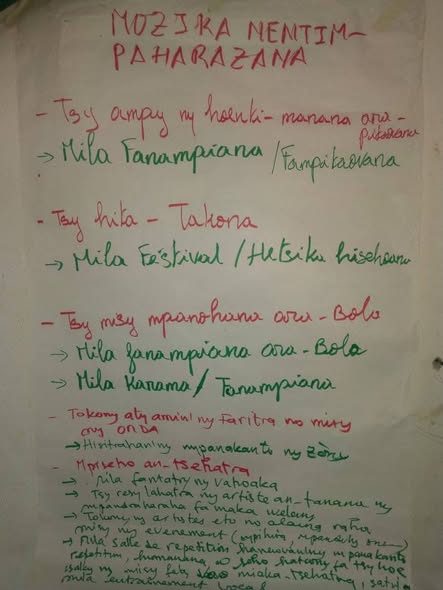 MOZIKA NENTIM-
PAHARAZANA
- Tsy ampy ny hoenti-manana ara-
pitaovana
→ Mila Fanampiana / Fampitaovana
- Tsy hita - Takona
→ Mila Festival / Hetsika hisehoana
- Tsy misy mpanohana ara-Bola
→ Mila fanampiana ara-Bola
→ Mila Karama / Tanampiana
- Tokony aty amin'ny faritra no misy
ny ONDA
→ Hisitrahan'ny mpanakanto ny zony
- Mpiseho an-tsehatra
→ Mila fantatry ny vahoaka
→ Tsy lahatra ny artiste an-tanana ny
mpandraharaha fa maka
→ Tokony ny artistes eto no alaina raha
misy ny evenement
→ Mila salle de repetition ny mpanakanto
repetition, fa tsy hoe
ny misy miaka-tsehatra,
mila entrainement